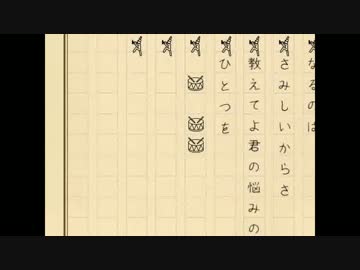 なるのは
さみしいからさ
教えてよ君の悩みの
ひとつを